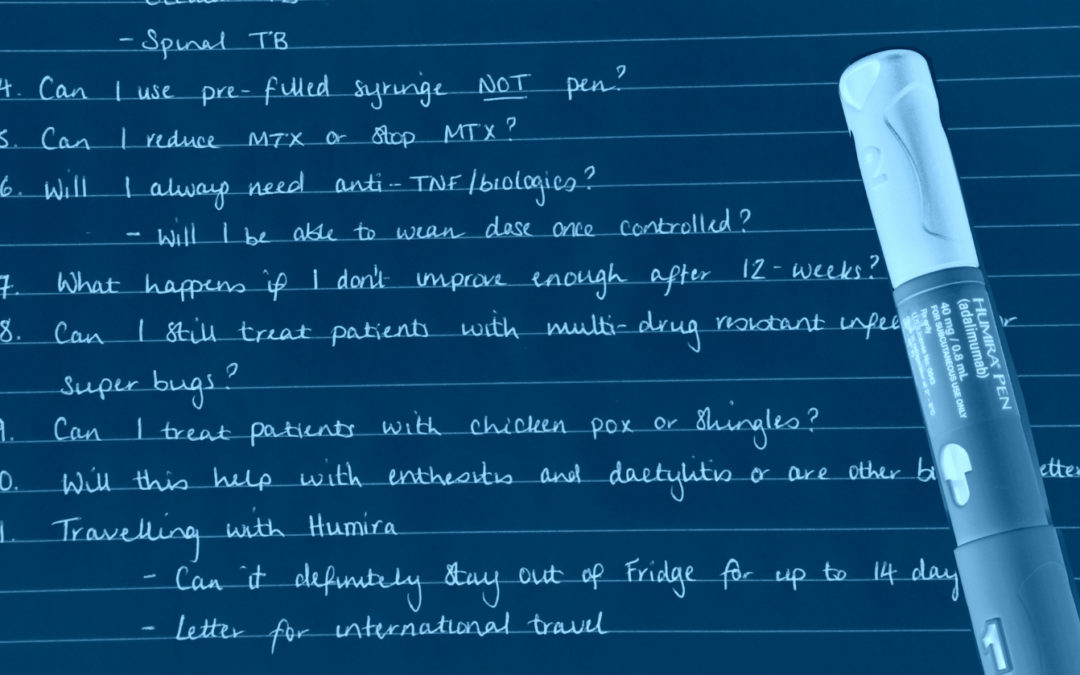 - Spinal TB
4. Can I use pre-filled syringe NOT pen?
5. Can I reduce MTX or stop MTX?
6. Will I always need anti-TNF/biologics?
- Will I be able to wean dose once controlled?
7. What happens if I don't improve enough after 12-weeks?
8. Can I still treat patients with multi-drug resistant
super bugs?
9. Can I treat patients with chicken pox or shingles?
0. Will this help with enthesitis and dactylitis or are other
1. Travelling with Humira
- Can it definitely stay out of Fridge for up to 14 day
- Letter for international travel
2
HUMIRA PEN
(adalimumab)
40 mg / 0.8 mL
FOR SUBCUTANEOUS USE ONLY
1